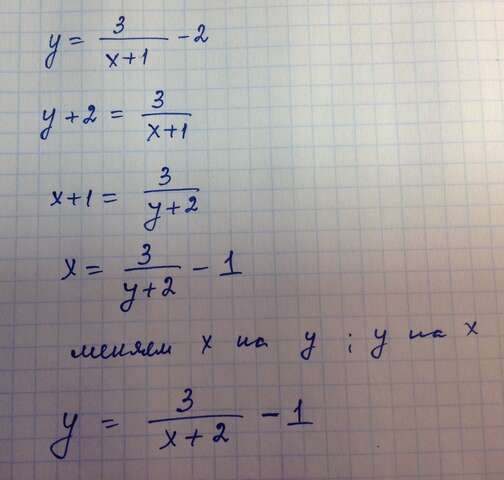 y = 3/(x+1) - 2
y + 2 = 3/(x+1)
x + 1 = 3/(y+2)
x = 3/(y+2) - 1
меняем x на y ; y на x
y = 3/(x+2) - 1